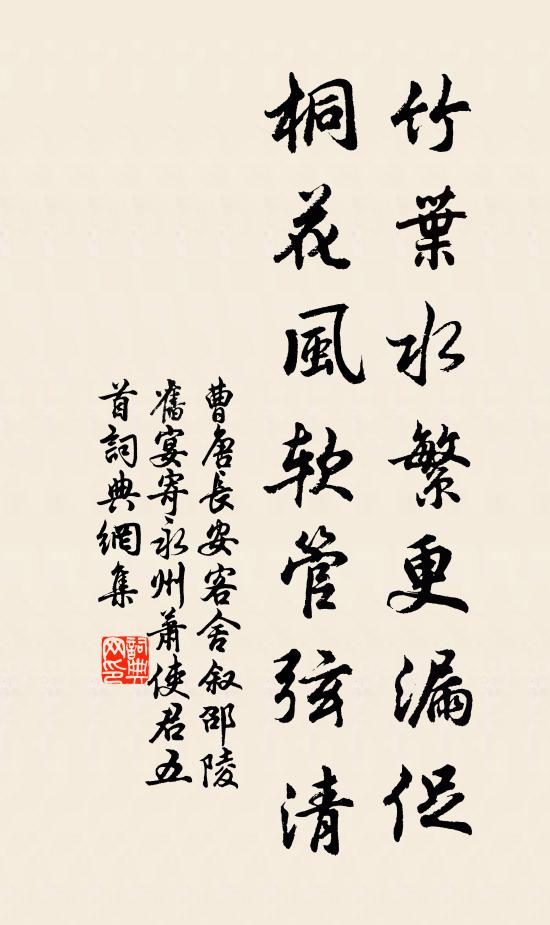 竹葉水繁更漏促
桐花風軟管弦清
曹唐長安客舍叙邵陵
舊宴寄永州蕭使君五
首詞典網集
詞典網印